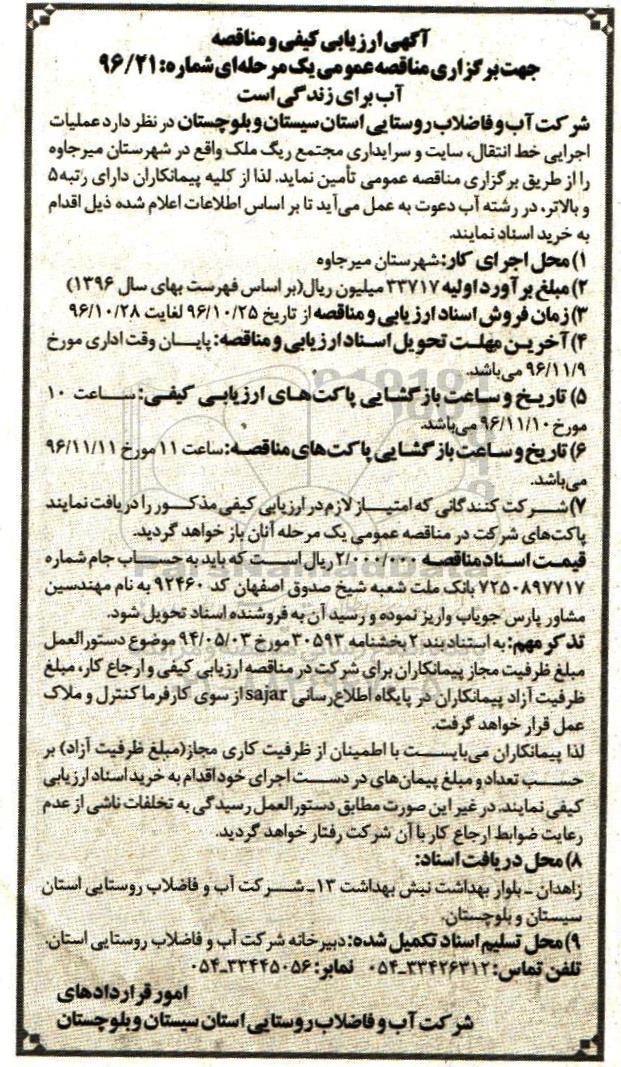 آگهی ارزیابی کیفی و مناقصه
جهت برگزاری مناقصه عمومی یک مرحله‌ای شماره: ۹۶/۲۱
آب برای زندگی است
شرکت آب و فاضلاب روستایی استان سیستان و بلوچستان در نظر دارد عملیات
اجرایی خط انتقال، سایت و سرایداری مجتمع ریگ ملک واقع در شهرستان میرجاوه
را از طریق برگزاری مناقصه عمومی تأمین نماید. لذا از کلیه پیمانکاران دارای رتبه ۵
و بالاتر، در رشته آب دعوت به عمل می‌آید تا بر اساس اطلاعات اعلام شده ذیل اقدام
به خرید اسناد نمایند.
۱) محل اجرای کار: شهرستان میرجاوه
۲) مبلغ برآورد اولیه ۳۳۷۱۷ میلیون ریال(بر اساس فهرست بهای سال ۱۳۹۶)
۳) زمان فروش اسناد ارزیابی و مناقصه از تاریخ ۹۶/۱۰/۲۵ لغایت ۹۶/۱۰/۲۸
۴) آخرین مهلت تحویل اسناد ارزیابی و مناقصه: پایان وقت اداری مورخ
۹۶/۱۱/۹ می‌باشد.
۵) تاریخ و ساعت بازگشایی پاکت‌های ارزیابی کیفی: ساعت ۱۰
مورخ ۹۶/۱۱/۱۰ می‌باشد.
۶) تاریخ و ساعت بازگشایی پاکت‌های مناقصه: ساعت ۱۱ مورخ ۹۶/۱۱/۱۱
می‌باشد.
۷) شرکت کنندگانی که امتیاز لازم در ارزیابی کیفی مذکور را دریافت نمایند
پاکت‌های شرکت در مناقصه عمومی یک مرحله آنان باز خواهد گردید.
قیمت اسناد مناقصه ۲/۰۰۰/۰۰۰ ریال است که باید به حساب جام شماره
۷۲۵۰۸۹۷۷۱۷ بانک ملت شعبه شیخ صدوق اصفهان کد ۹۲۴۶۰ به نام مهندسین
مشاور پارس جویاب واریز نموده و رسید آن به فروشنده اسناد تحویل شود.
تذکر مهم: به استناد بند ۲ بخشنامه ۳۰۵۹۳ مورخ ۹۴/۰۵/۰۳ موضوع دستورالعمل
مبلغ ظرفیت مجاز پیمانکاران برای شرکت در مناقصه ارزیابی کیفی و ارجاع کار، مبلغ
ظرفیت آزاد پیمانکاران در پایگاه اطلاع‌رسانی sajar از سوی کارفرما کنترل و ملاک
عمل قرار خواهد گرفت.
لذا پیمانکاران می‌بایست با اطمینان از ظرفیت کاری مجاز(مبلغ ظرفیت آزاد) بر
حسب تعداد و مبلغ پیمان‌های در دست اجرای خود اقدام به خرید اسناد ارزیابی
کیفی نمایند. در غیر این صورت مطابق دستورالعمل رسیدگی به تخلفات ناشی از عدم
رعایت ضوابط ارجاع کار با آن شرکت رفتار خواهد گردید.
۸) محل دریافت اسناد:
زاهدان ـ بلوار بهداشت نبش بهداشت ۱۳ـ شرکت آب و فاضلاب روستایی استان
سیستان و بلوچستان.
۹) محل تسلیم اسناد تکمیل شده: دبیرخانه شرکت آب و فاضلاب روستایی استان.
تلفن تماس: ۳۳۴۲۶۳۱۲ـ۰۵۴ نمابر: ۳۳۴۴۵۰۵۶ـ۰۵۴
امور قراردادهای
شرکت آب و فاضلاب روستایی استان سیستان و بلوچستان